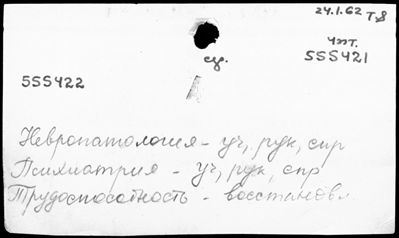 24.1.62 Т.8
чит.
су. 555421
555422
Невропатология - уч, рук, спр
Психиатрия - уч, рук, спр
Трудоспособность - восстановл.